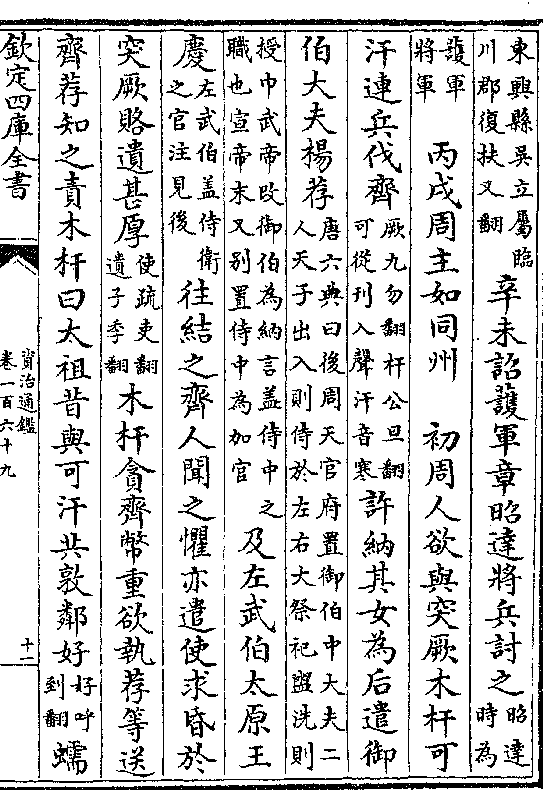 東興縣吳立屬臨
川郡復扶又翻
辛未詔護軍章昭達將兵討之
昭達
時為
護軍
將軍
丙戌周主如同州
初周人欲與突厥木杆可
汗連兵伐齊
厥九勿翻杆公旦翻
可從刊入聲汗音寒
許納其女為后遣御
伯大夫楊荐
唐六典曰後周天官府置御伯中大夫二
人天子出入則侍於左右大祭祀盥洗則
授巾武帝改御伯為納言盖侍中之
職也宣帝末又别置侍中為加官
及左武伯太原王
慶
左武伯盖侍衛
之官注見後
往結之齊人聞之懼亦遣使求昏於
突厥賂遺甚厚
使疏吏翻
遺于季翻
木杆貪齊幣重欲執荐等送
齊荐知之責木杆曰太祖昔與可汗共敦鄰好
好呼
到翻
蠕
欽定四庫全書
資治通鑑
卷一百六十九
十二